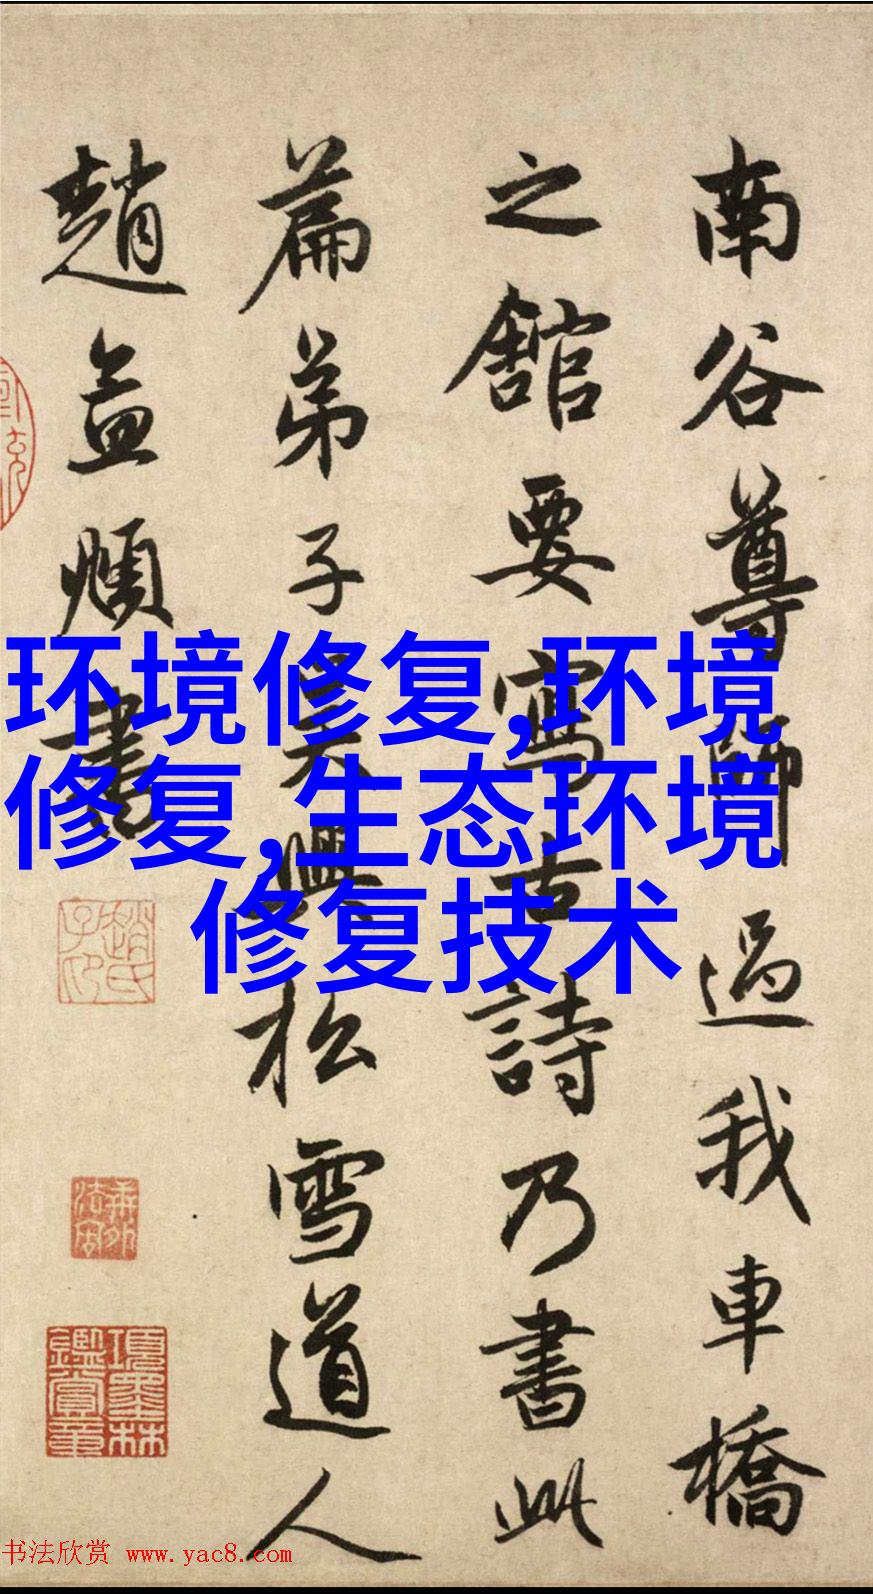 南谷尊師過我車橋
之舘要寫古詩乃書此
篇弟子吳興松雪道人
趙孟頫書
项墨林鑑賞章
环境修复,环境
修复,生态环境
修复技术
书法欣赏 www.yac8.com